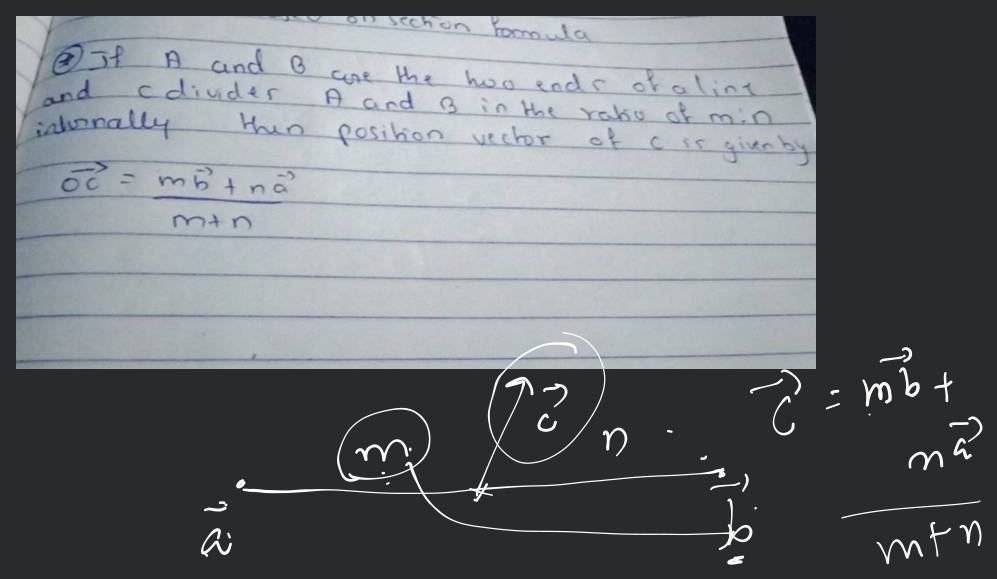 on section formula
② If A and B are the two ends of a line
and c divides A and B in the ratio of m:n
internally then position vector of c is given by
→OC = m→b + n→a
m+n
m →c n
→a →b
→c = m→b +
n→a
m+n